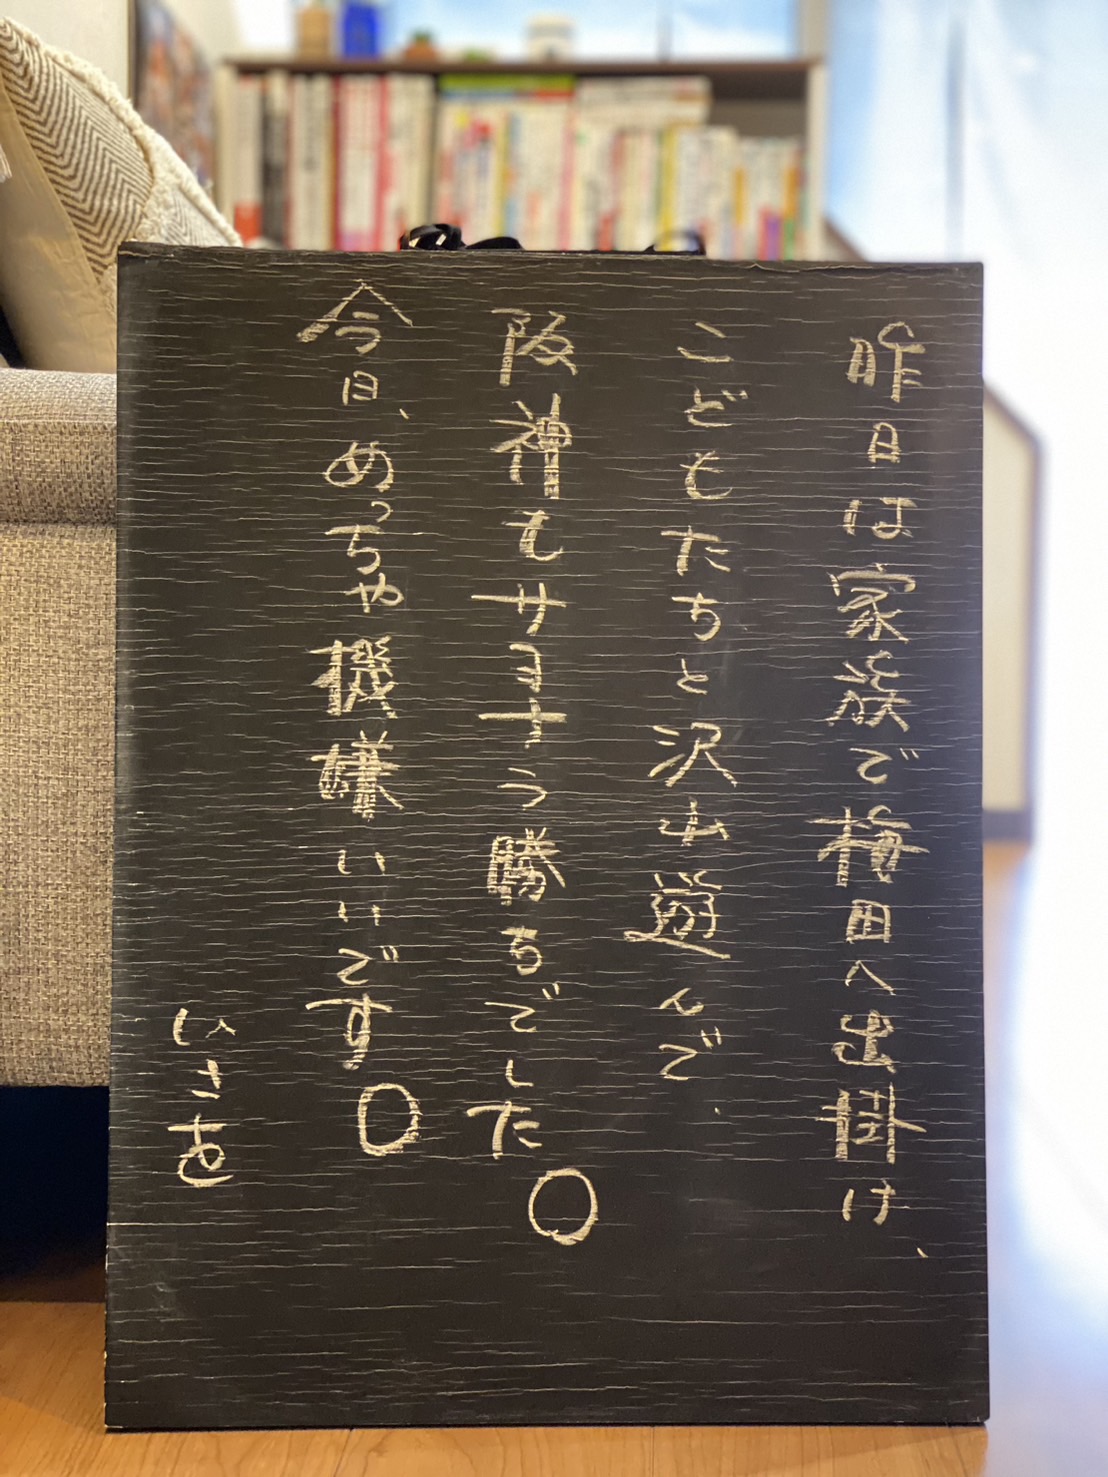 昨日は家族で梅田へ出掛け、
こどもたちと沢山遊んで
阪神もサヨナラ勝ちでした。
今日、めっちゃ機嫌いいです。
ひさを